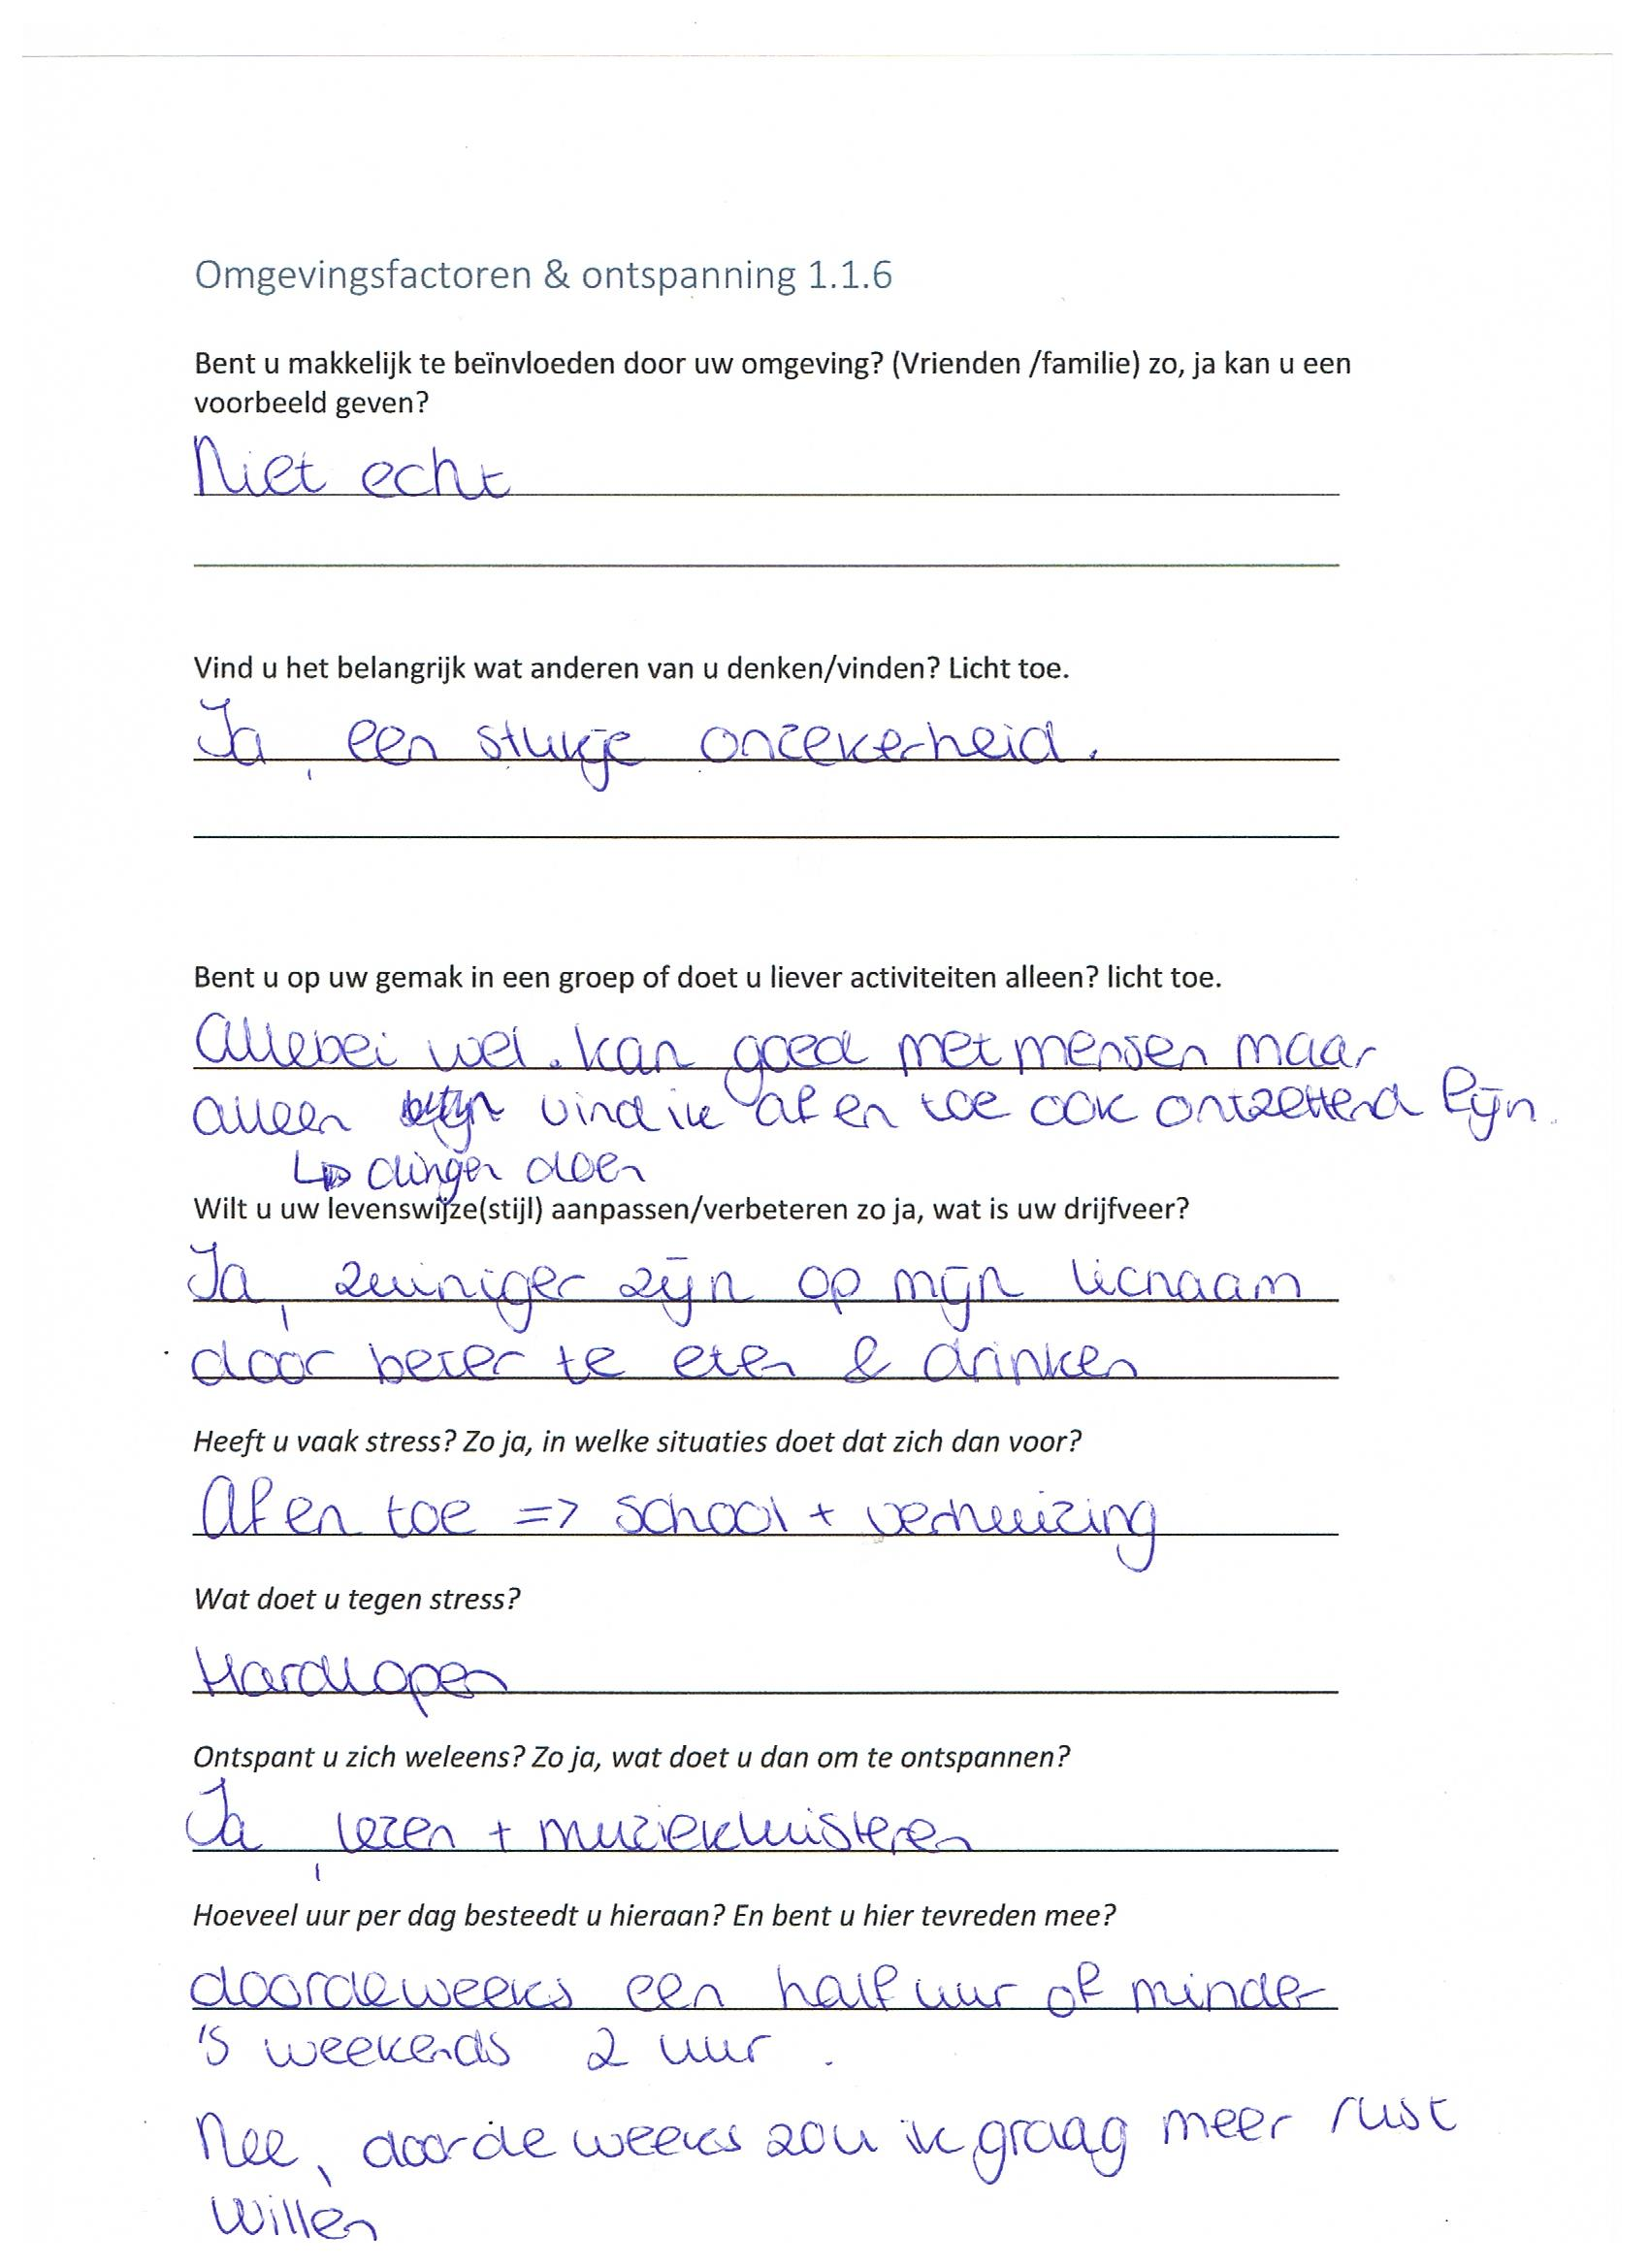 Omgevingsfactoren & ontspanning 1.1.6
Bent u makkelijk te beïnvloeden door uw omgeving? (Vrienden /familie) zo, ja kan u een
voorbeeld geven?
Niet echt
Vind u het belangrijk wat anderen van u denken/vinden? Licht toe.
Ja, een stukje onzekerheid.
Bent u op uw gemak in een groep of doet u liever activiteiten alleen? licht toe.
Allebei wel. kan goed met mensen maar
alleen vind ik af en toe ook ontzettend fijn.
↳ dingen doen
Wilt u uw levenswijze(stijl) aanpassen/verbeteren zo ja, wat is uw drijfveer?
Ja, zuiniger zijn op mijn lichaam
door beter te eten & drinken
Heeft u vaak stress? Zo ja, in welke situaties doet dat zich dan voor?
Af en toe => school + verhuizing
Wat doet u tegen stress?
Hardlopen
Ontspant u zich weleens? Zo ja, wat doet u dan om te ontspannen?
Ja, lezen + muziekluisteren
Hoeveel uur per dag besteedt u hieraan? En bent u hier tevreden mee?
doordeweeks een half uur of minder
's weekends 2 uur.
Nee, doordeweeks zou ik graag meer rust
willen